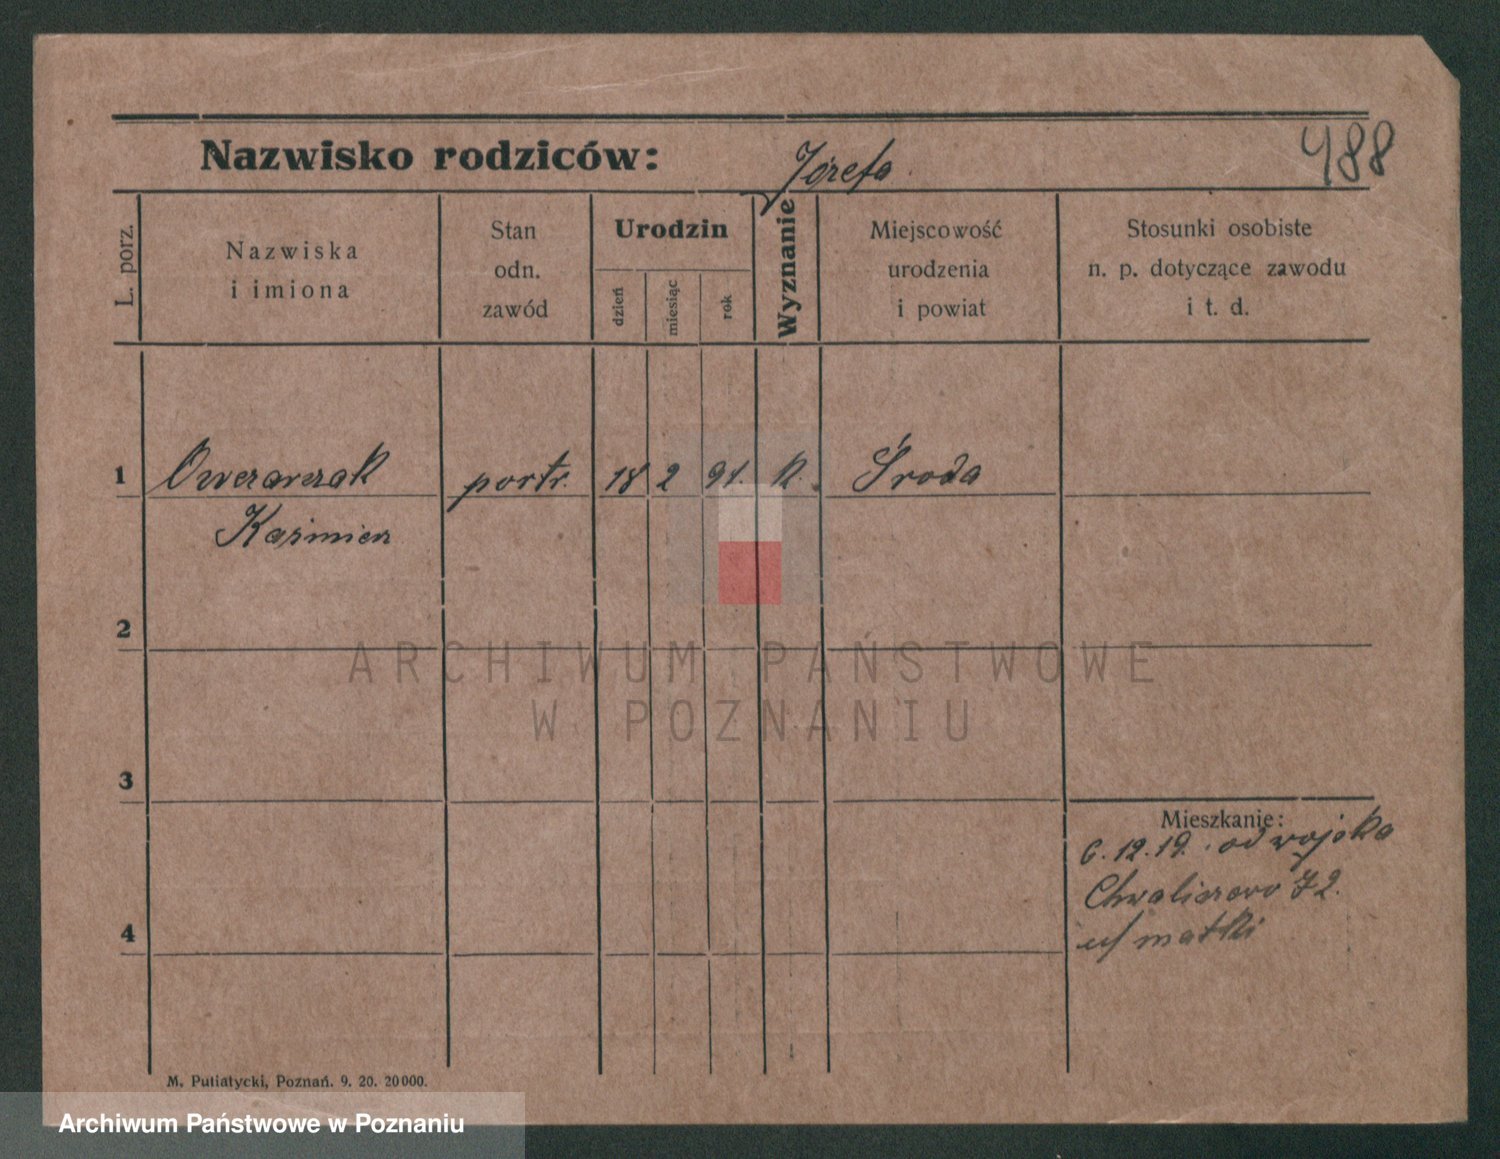 Nazwisko rodziców: Józefa
488
L. porz.
Nazwiska
i imiona
Stan
odn.
zawód
Urodzin
dzień
miesiąc
rok
Wyznanie
Miejscowość
urodzenia
i powiat
Stosunki osobiste
n. p. dotyczące zawodu
i t. d.
1 Owczarzak portr. 18 2 91. k. Środa
Kaźmierz
2
ARCHIWUM PAŃSTWOWE
W POZNANIU
3
Mieszkanie:
6.12.19. od wojska
Chwaliszewo 72.
u/ matki
4
M. Putiatycki, Poznań. 9. 20. 20000.
Archiwum Państwowe w Poznaniu